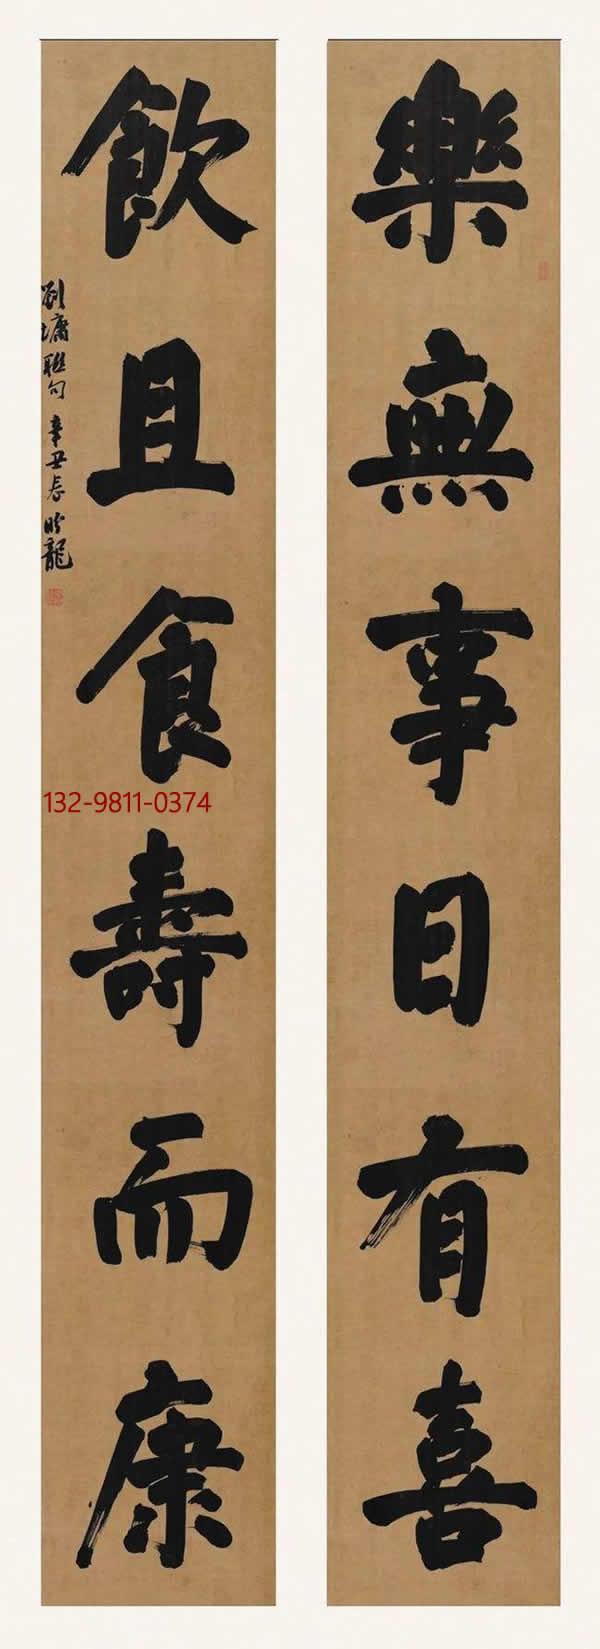 樂無事日有喜
飲且食壽而康
劉墉聯句 辛丑長
龍
132-9811-0374